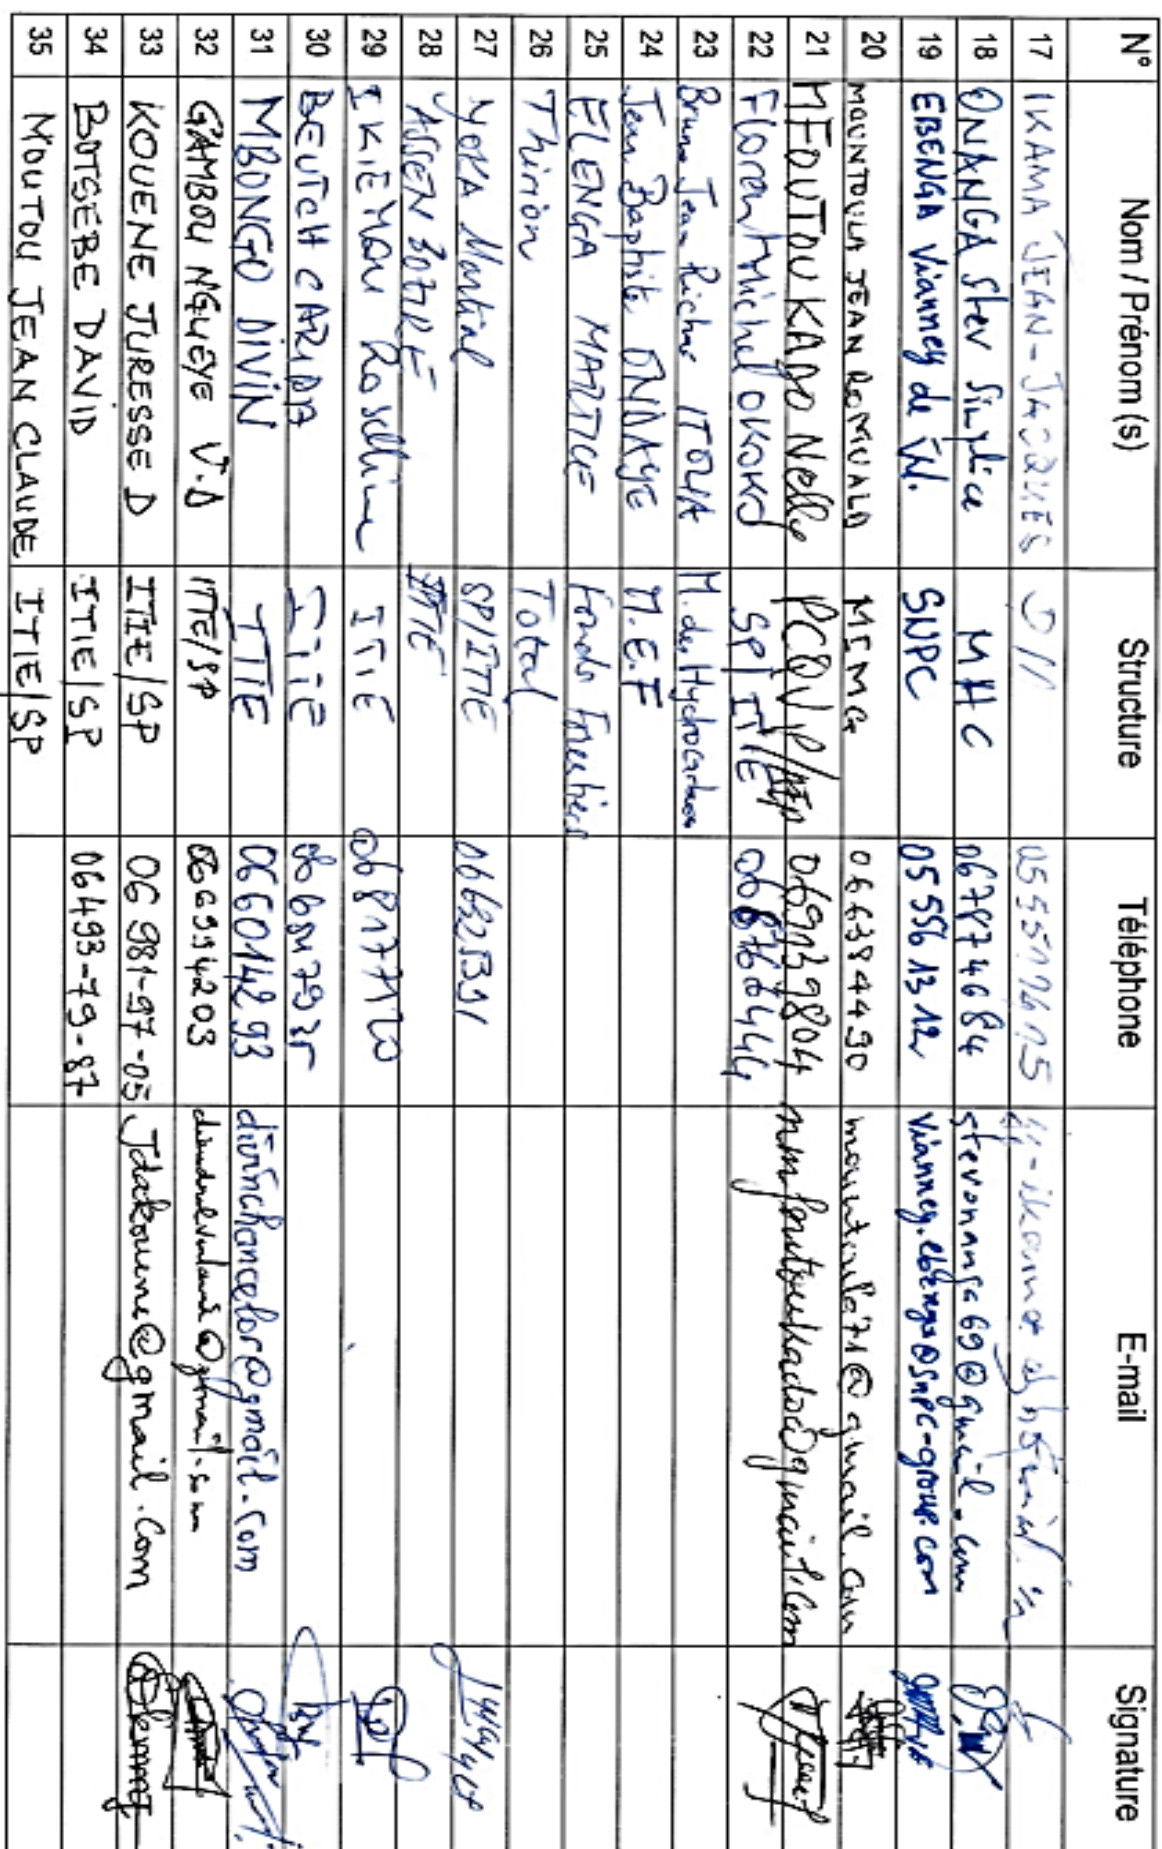 N° Nom / Prénom (s) Structure Téléphone E-mail Signature
17 IKAMA JEAN-JACQUES
18 ONANGA Stev Simplice MHC 067874684 stevonanga69@gmail.com
19 EBENGA Vianney de W. SNPC 05 556 13 12 vianney.ebenga@snpc-group.com
20 MOUNTOULA JEAN ROMUALD MIMG 066384490 mountoula71@gmail.com
21 MFOUTOU KADO Nelly 069139804 nmfoutoukado@gmail.com
22 Florent Michel OKOKO SP/ITIE
23 Bruno Jean Richar ITOUA M. des Hydrocarbures
24 Jean Baptiste ONDAYE M.E.F
25 ELENGA MAIXTICE Fonds Forestiers
26 Thirion Total
27 YOKA Martial SP/ITIE
28 YASSEN ITIE
29 IKIEMOU Roselline ITIE 068177120
30 BEUTCH CARIDA ITIE
31 MBONGO DIVIN ITIE 066014293 divinchancelor@gmail.com
32 GAMBOU NGUEYE V.D ITIE/SP 066994203
33 KOUENE JURESSE D ITIE/SP 06 981-97-05 Jdakouene@gmail.com
34 BOTSEBE DAVID ITIE/SP 06493-79-87
35 MOUTOU JEAN CLAUDE ITIE/SP